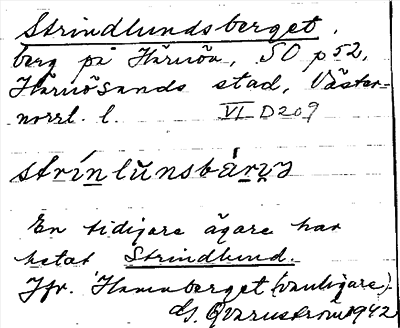 Strindlundsberget,
berg på Härnön, SO p 52,
Härnösands stad, Väster-
norrl. l. VI D 209
strínlŭnsbárỵ
En tidigare ägare har
hetat Strindlund.
Jfr. Hamnberget (vanligare).
G. Qvarnström 1942